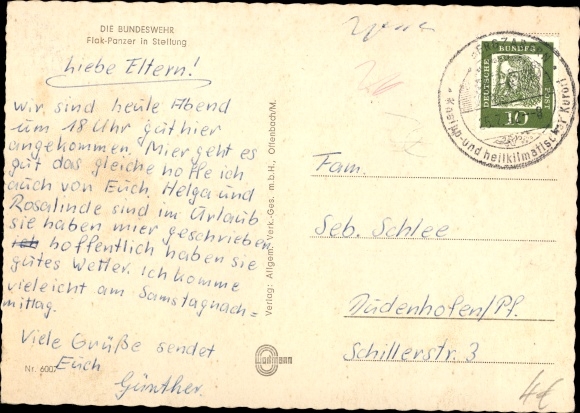 DIE BUNDESWEHR
Flak-Panzer in Stellung
Liebe Eltern!
wir sind heute Abend
um 18 Uhr gut hier
angekommen. Mier geht es
gut das gleiche hoffe ich
auch von Euch. Helga und
Rosalinde sind im Urlaub
sie haben mier geschrieben
hoffentlich haben sie
gutes Wetter. Ich komme
vieleicht am Samstagnach=
mittag.
Viele Grüße sendet
Euch
Günther.
Nr. 6007
Verlag: Allgem. Verk.-Ges. m.b.H., Offenbach/M.
DEUTSCHE BUNDES POST
10
Kneipp- und heilklimatischer Kurort
Fam.
Seb. Schlee
Dudenhofen/Pf.
Schillerstr. 3
4€